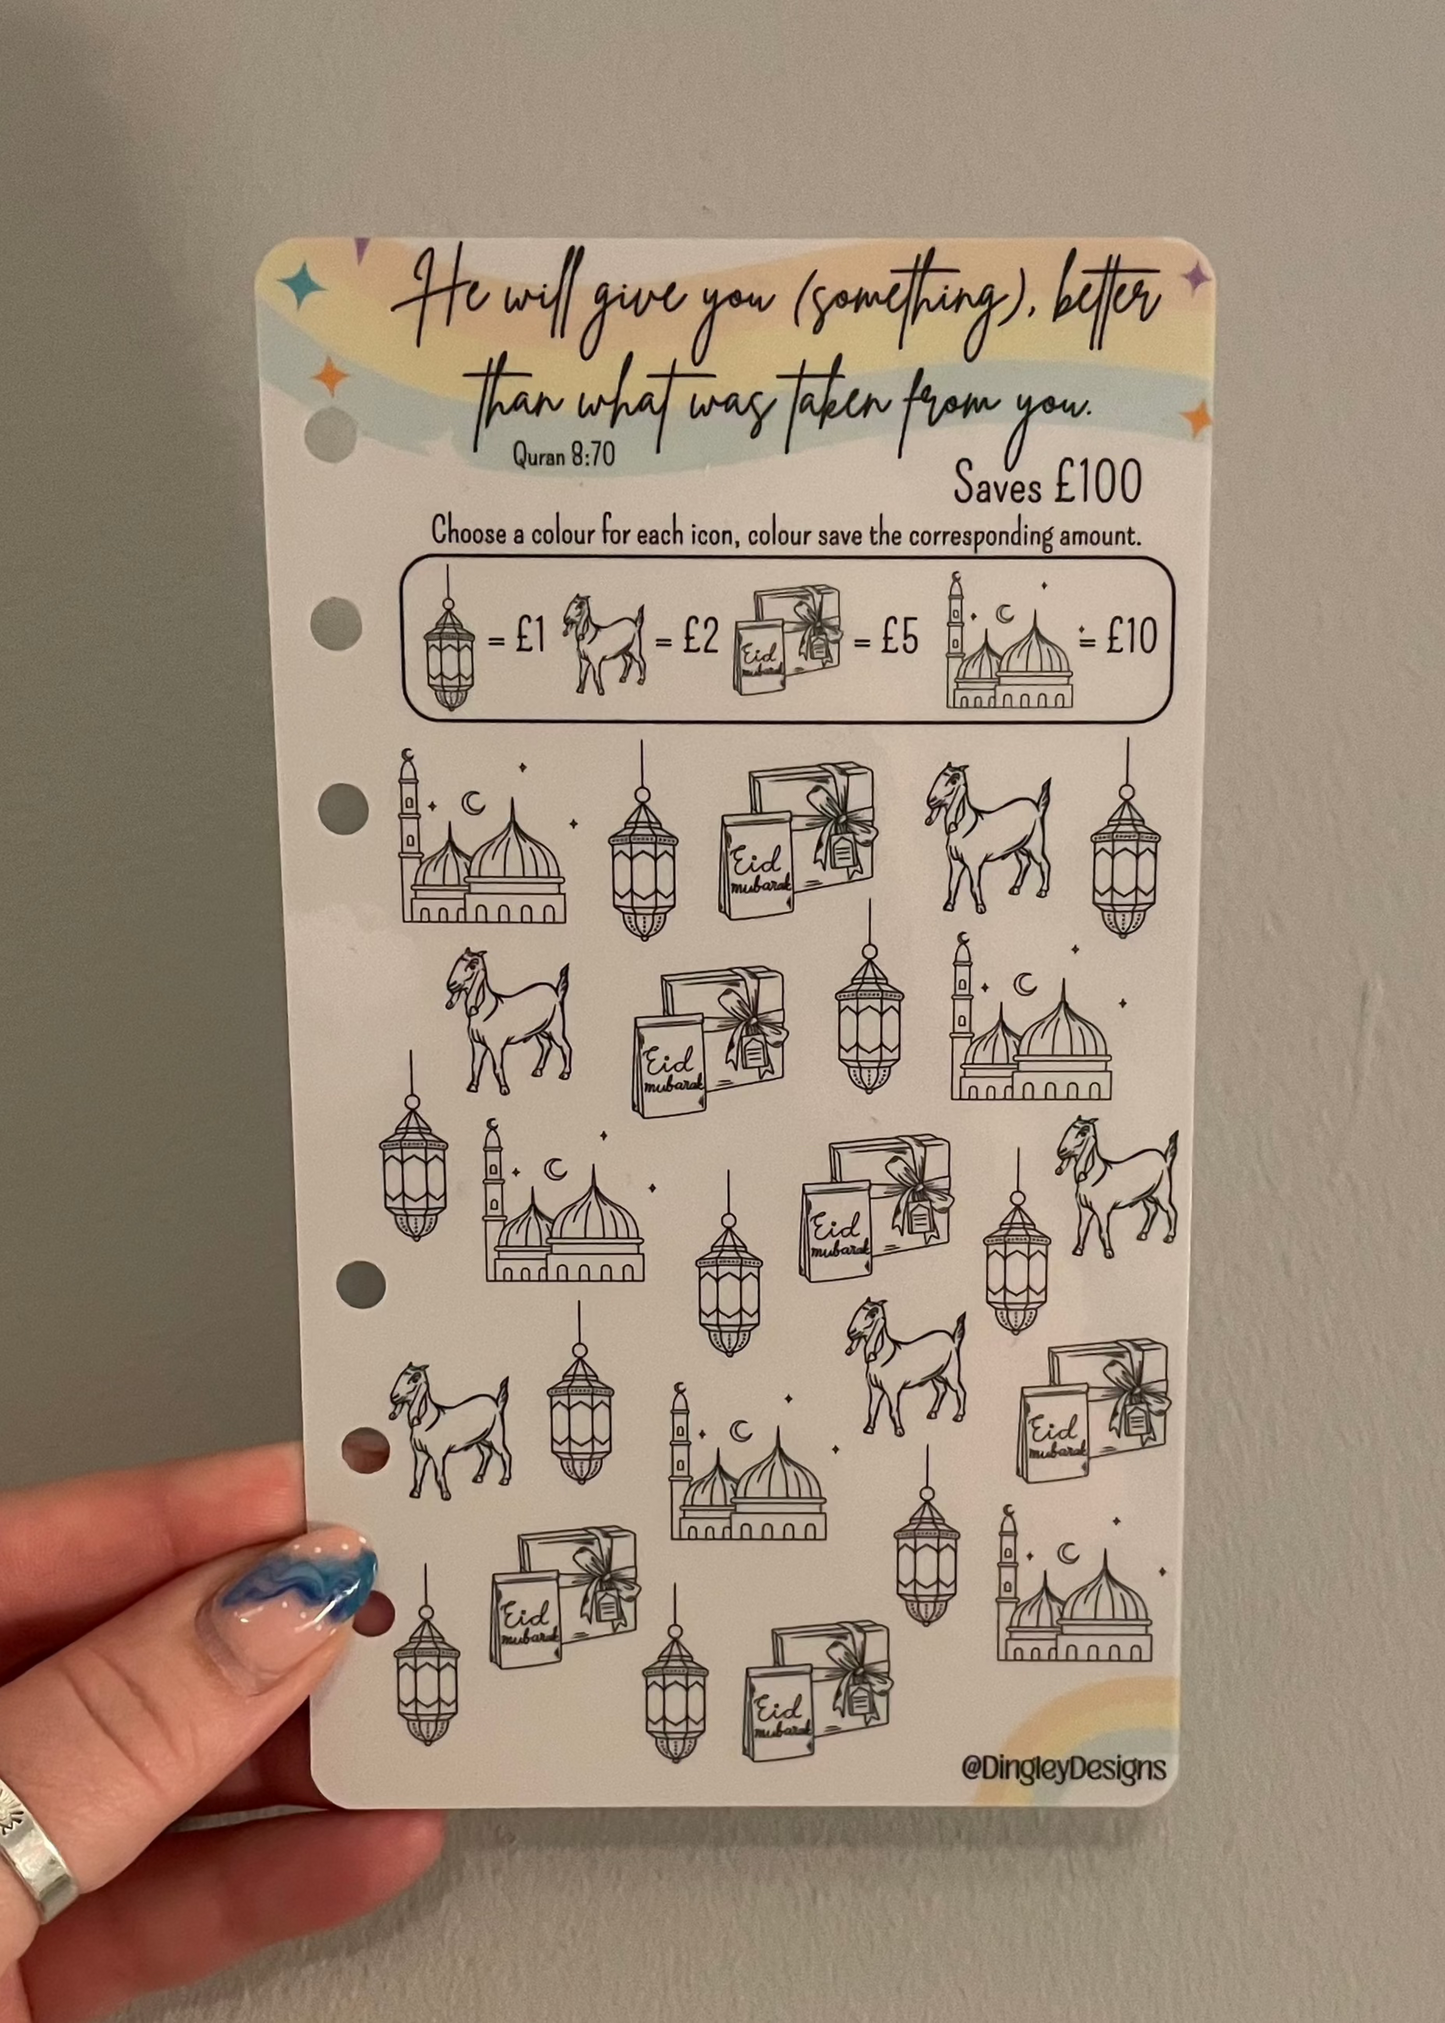 He will give you (something), better
than what was taken from you.
Quran 8:70
Saves £100
Choose a colour for each icon, colour save the corresponding amount.
= £1 = £2 Eid mubarak = £5 = £10
Eid
mubarak
Eid
mubarak
Eid
mubarak
Eid
mubarak
Eid
mubarak
Eid
mubarak
@DingleyDesigns